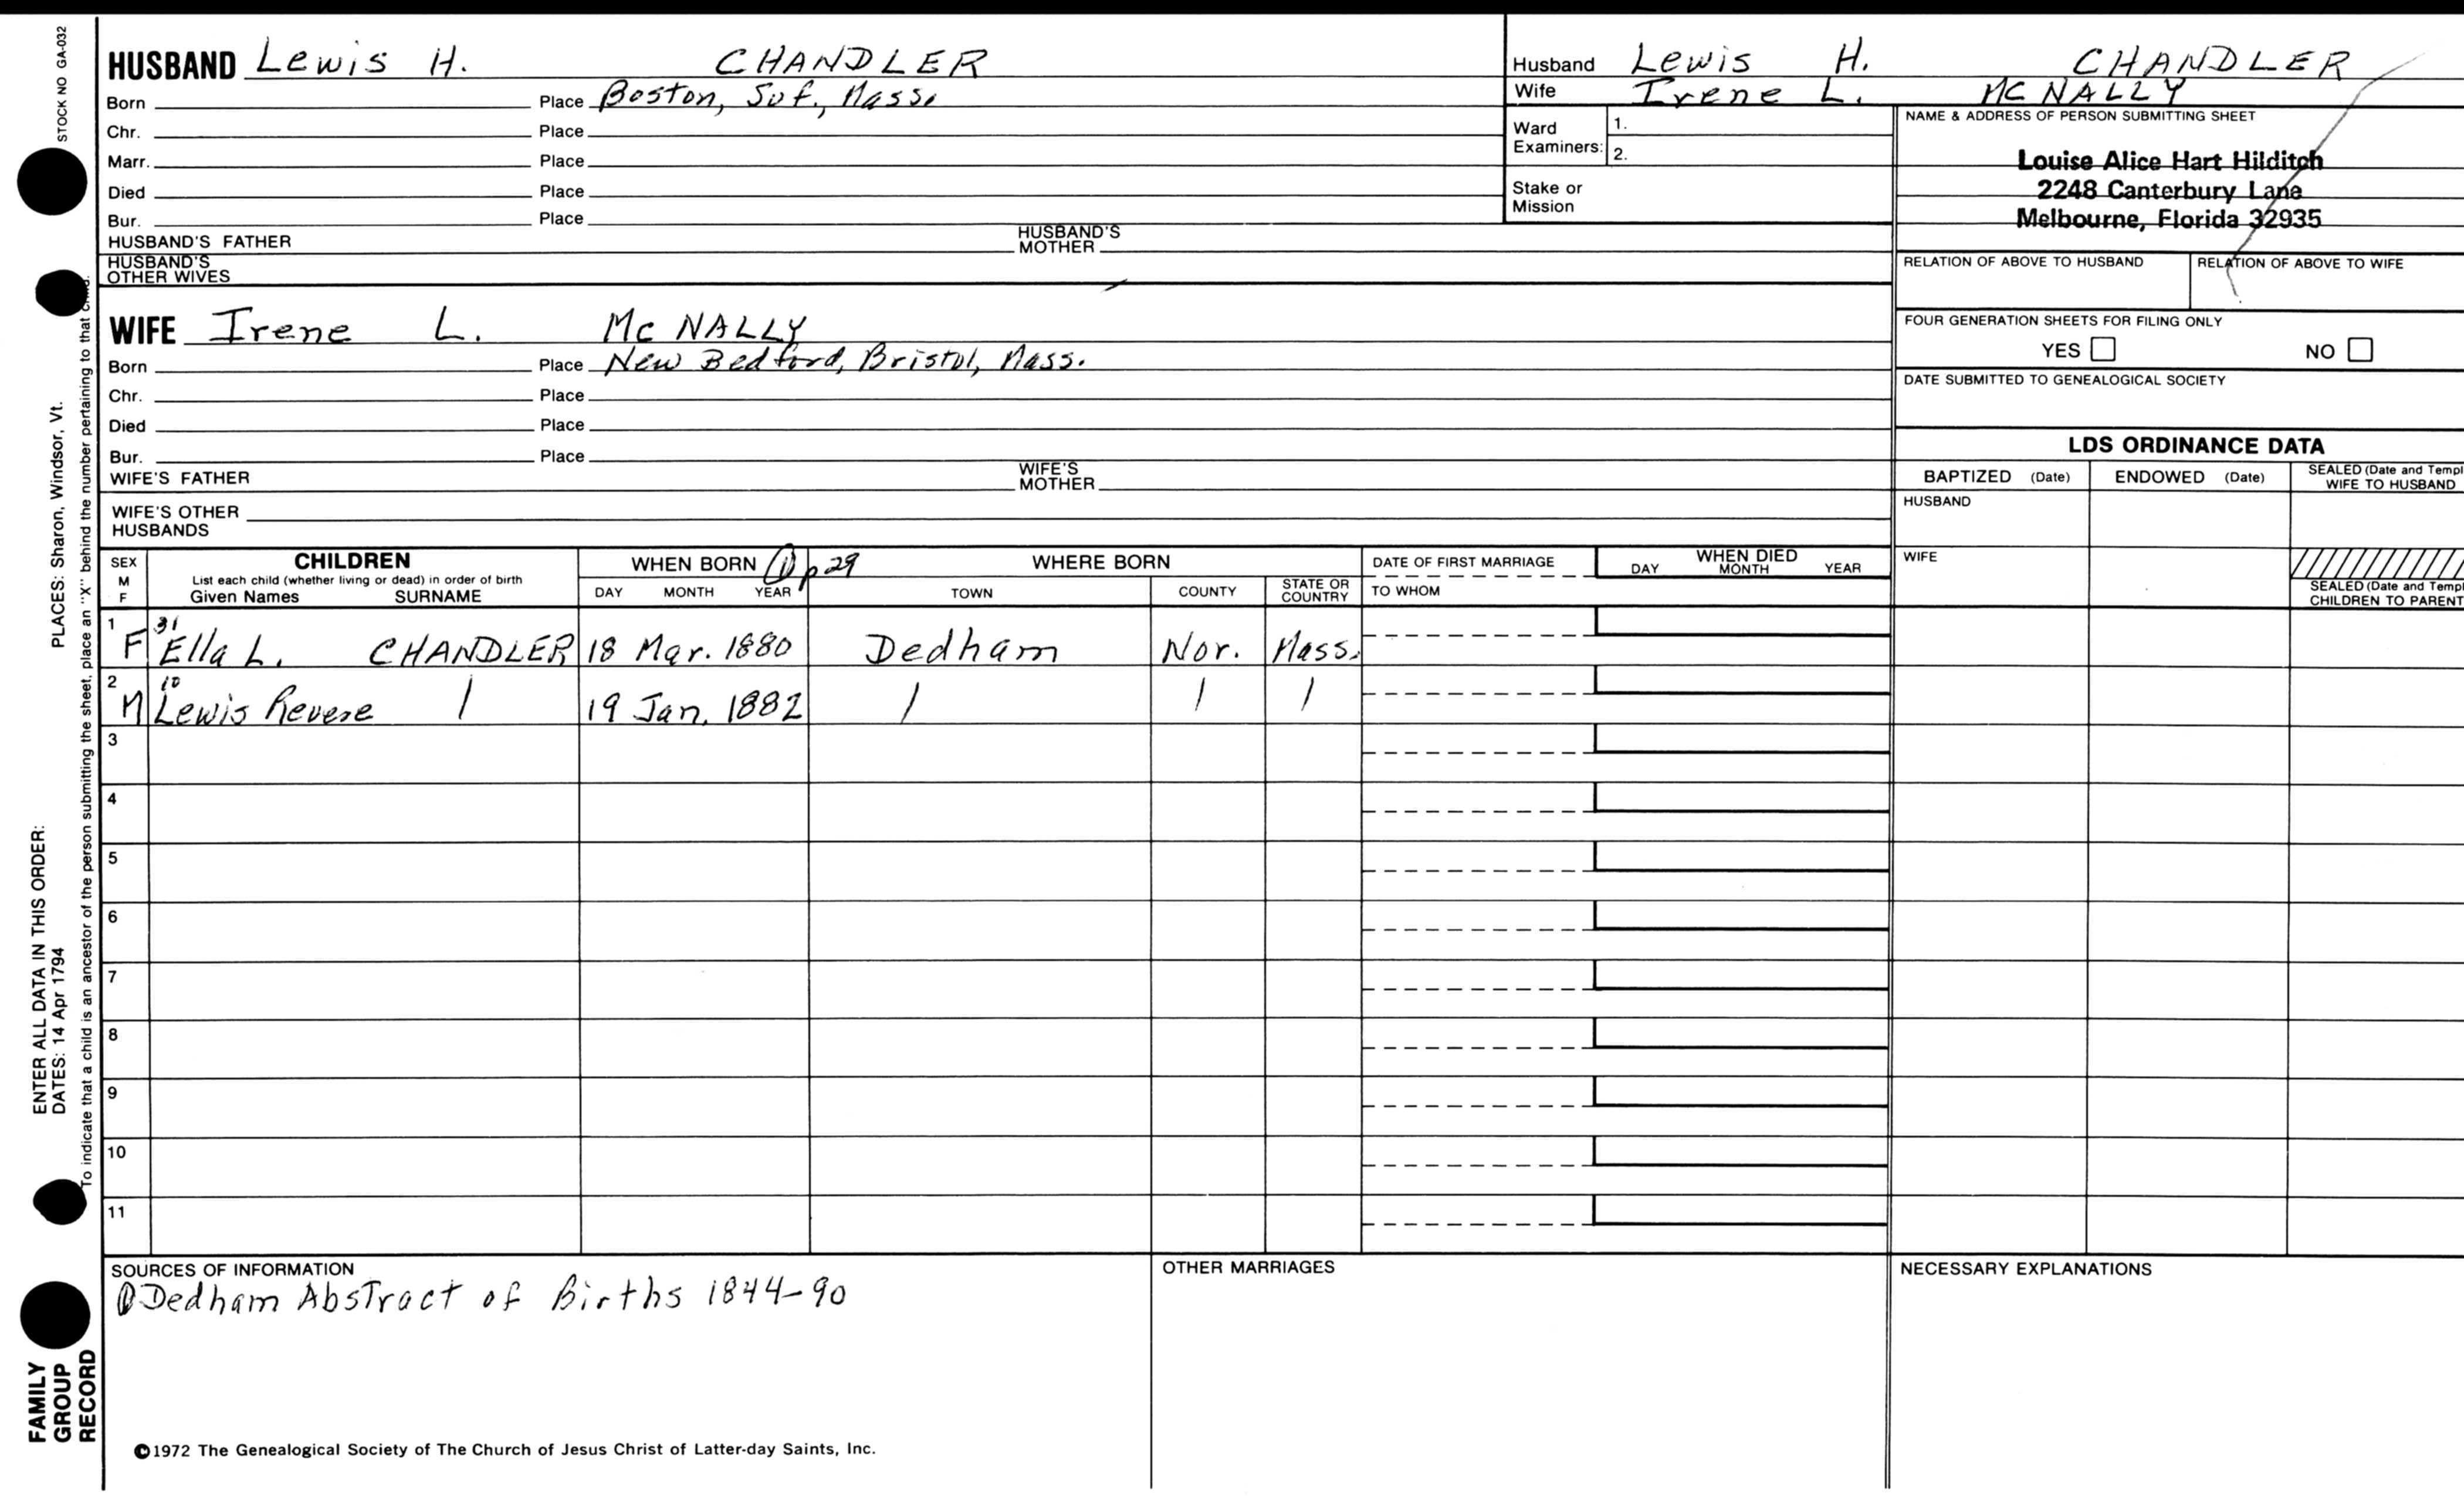 STOCK NO GA-032
HUSBAND Lewis H. CHANDLER
Born Place Boston, Suf., Mass.
Chr. Place
Marr. Place
Died Place
Bur. Place
HUSBAND'S FATHER HUSBAND'S MOTHER
HUSBAND'S OTHER WIVES
WIFE Irene L. Mc NALLY
Born Place New Bedford, Bristol, Mass.
Chr. Place
Died Place
Bur. Place
WIFE'S FATHER WIFE'S MOTHER
WIFE'S OTHER HUSBANDS
Husband Lewis H. CHANDLER
Wife Irene L. MC NALLY
Ward Examiners: 1.
2.
Stake or Mission
NAME & ADDRESS OF PERSON SUBMITTING SHEET
Louise Alice Hart Hilditch
2248 Canterbury Lane
Melbourne, Florida 32935
RELATION OF ABOVE TO HUSBAND RELATION OF ABOVE TO WIFE
FOUR GENERATION SHEETS FOR FILING ONLY
YES NO
DATE SUBMITTED TO GENEALOGICAL SOCIETY
LDS ORDINANCE DATA
BAPTIZED (Date) ENDOWED (Date) SEALED (Date and Templ
WIFE TO HUSBAND
HUSBAND
WIFE
SEALED (Date and Templ
CHILDREN TO PARENT
SEX M F CHILDREN WHEN BORN ① p 29 WHERE BORN DATE OF FIRST MARRIAGE WHEN DIED
List each child (whether living or dead) in order of birth
Given Names SURNAME DAY MONTH YEAR TOWN COUNTY STATE OR COUNTRY TO WHOM DAY MONTH YEAR
1 F 31 Ella L. CHANDLER 18 Mar. 1880 Dedham Nor. Mass.
2 M 10 Lewis Revere | 19 Jan. 1882 | | |
3
4
5
6
7
8
9
10
11
SOURCES OF INFORMATION
① Dedham Abstract of Births 1844-90
OTHER MARRIAGES
NECESSARY EXPLANATIONS
©1972 The Genealogical Society of The Church of Jesus Christ of Latter-day Saints, Inc.
ENTER ALL DATA IN THIS ORDER:
DATES: 14 Apr 1794 PLACES: Sharon, Windsor, Vt.
To indicate that a child is an ancestor of the person submitting the sheet, place an "X" behind the number pertaining to that child.
FAMILY
GROUP
RECORD